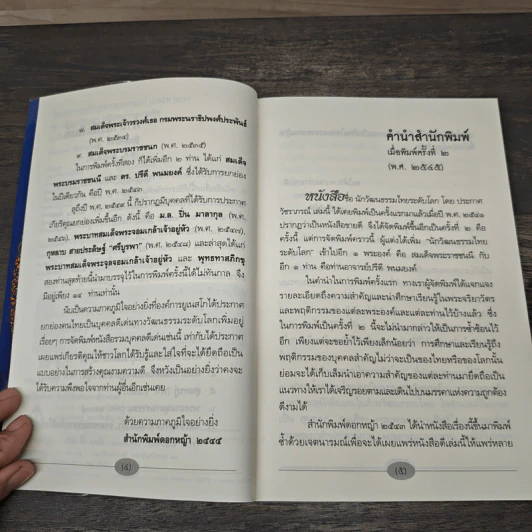 ๘. สมเด็จพระเจ้าวรวงศ์เธอ กรมพระนราธิปพงศ์ประพันธ์
(พ.ศ. ๒๕๓๔)
๙. สมเด็จพระบรมราชชนก (พ.ศ. ๒๕๓๕)
ในการพิมพ์ครั้งที่สอง ก็ได้เพิ่มอีก ๒ ท่าน ได้แก่ สมเด็จ
พระบรมราชชนนี และ ดร. ปรีดี พนมยงค์ ซึ่งได้รับการยกย่อง
ในปีเดียวกัน คือปี พ.ศ. ๒๕๔๓
สู่ถึงปี พ.ศ. ๒๕๔๕ นี้ ก็ปรากฏมีบุคคลที่ได้รับการประกาศ
เกียรติคุณยกย่องเพิ่มขึ้นอีก ดังนี้ คือ ม.ล. ปิ่น มาลากุล (พ.ศ.
๒๕๔๖), พระบาทสมเด็จพระจอมเกล้าเจ้าอยู่หัว (พ.ศ. ๒๕๔๗),
กุหลาบ สายประดิษฐ์ "ศรีบูรพา" (พ.ศ. ๒๕๔๘) และล่าสุดได้แก่
พระบาทสมเด็จพระจุลจอมเกล้าเจ้าอยู่หัว และ พุทธทาสภิกขุ
สองท่านสุดท้ายนี้นำมาบรรจุไว้ในการพิมพ์ครั้งนี้ไม่ทันกาล จึง
มีอยู่เพียง ๑๔ ท่านเท่านั้น
นับเป็นความภาคภูมิใจอย่างยิ่งที่องค์การยูเนสโกได้ประกาศ
ยกย่องคนไทยเป็นบุคคลดีเด่นทางวัฒนธรรมระดับโลกเพิ่มอยู่
เรื่อยๆ การจัดพิมพ์หนังสือรวมบุคคลดีเด่นเช่นนี้ เท่ากับได้ประกาศ
เผยแพร่เกียรติคุณให้ชาวโลกได้รับรู้และใส่ใจที่จะได้ยึดถือเป็น
แบบอย่างในการสร้างคุณงามความดี จึงหวังเป็นอย่างยิ่งว่าคงจะ
ได้รับความพึงพอใจจากท่านผู้อื่นอีกเช่นเคย
ด้วยความภาคภูมิใจอย่างยิ่ง
สำนักพิมพ์ดอกหญ้า ๒๕๔๕
(๔)
คำนำสำนักพิมพ์
เมื่อพิมพ์ครั้งที่ ๒
(พ.ศ. ๒๕๔๕)
หนังสือชื่อ นักวัฒนธรรมไทยระดับโลก โดย ประกาศ
วัชราภรณ์ เล่มนี้ ได้เคยพิมพ์เป็นครั้งแรกมาแล้วเมื่อปี พ.ศ. ๒๕๓๖
ปรากฏว่าเป็นหนังสือขายดี จึงได้จัดพิมพ์ขึ้นเป็นครั้งที่ ๒ คือ
ครั้งนี้ แต่การจัดพิมพ์คราวนี้ ผู้แต่งได้เพิ่ม "นักวัฒนธรรมไทย
ระดับโลก" เข้าไปอีก ๑ พระองค์ คือ สมเด็จพระราชชนนี กับ
อีก ๑ ท่าน คือท่านอาจารย์ปรีดี พนมยงค์
ในคำนำในการพิมพ์ครั้งแรก ทางเราผู้จัดพิมพ์ได้แจกแจง
รายละเอียดถึงความสำคัญและน่าศึกษาเรียนรู้ในพระจริยาวัตร
และพฤติกรรมของแต่ละพระองค์และแต่ละท่านไว้บ้างแล้ว ซึ่ง
ในการพิมพ์เป็นครั้งที่ ๒ นี้จะไม่นำมากล่าวไว้ให้เป็นการซ้ำซ้อนไว้
อีก เพียงแต่จะขอย้ำไว้เพียงเล็กน้อยว่า การศึกษาและเรียนรู้ถึง
พฤติกรรมของบุคคลสำคัญไม่ว่าจะเป็นของไทยหรือของโลกนั้น
ย่อมจะได้เก็บเล็มนำเอาความสำคัญของแต่ละท่านมายึดถือเป็น
แนวทางให้เราได้เจริญรอยตามและเดินไปบนมรรคาแห่งความถูกต้อง
ดีงามได้
สำนักพิมพ์ดอกหญ้า ๒๕๔๓ ได้นำหนังสือเรื่องนี้ขึ้นมาพิมพ์
ซ้ำด้วยเจตนารมณ์เพื่อจะได้เผยแพร่หนังสือดีเล่มนี้ให้แพร่หลาย
(๕)